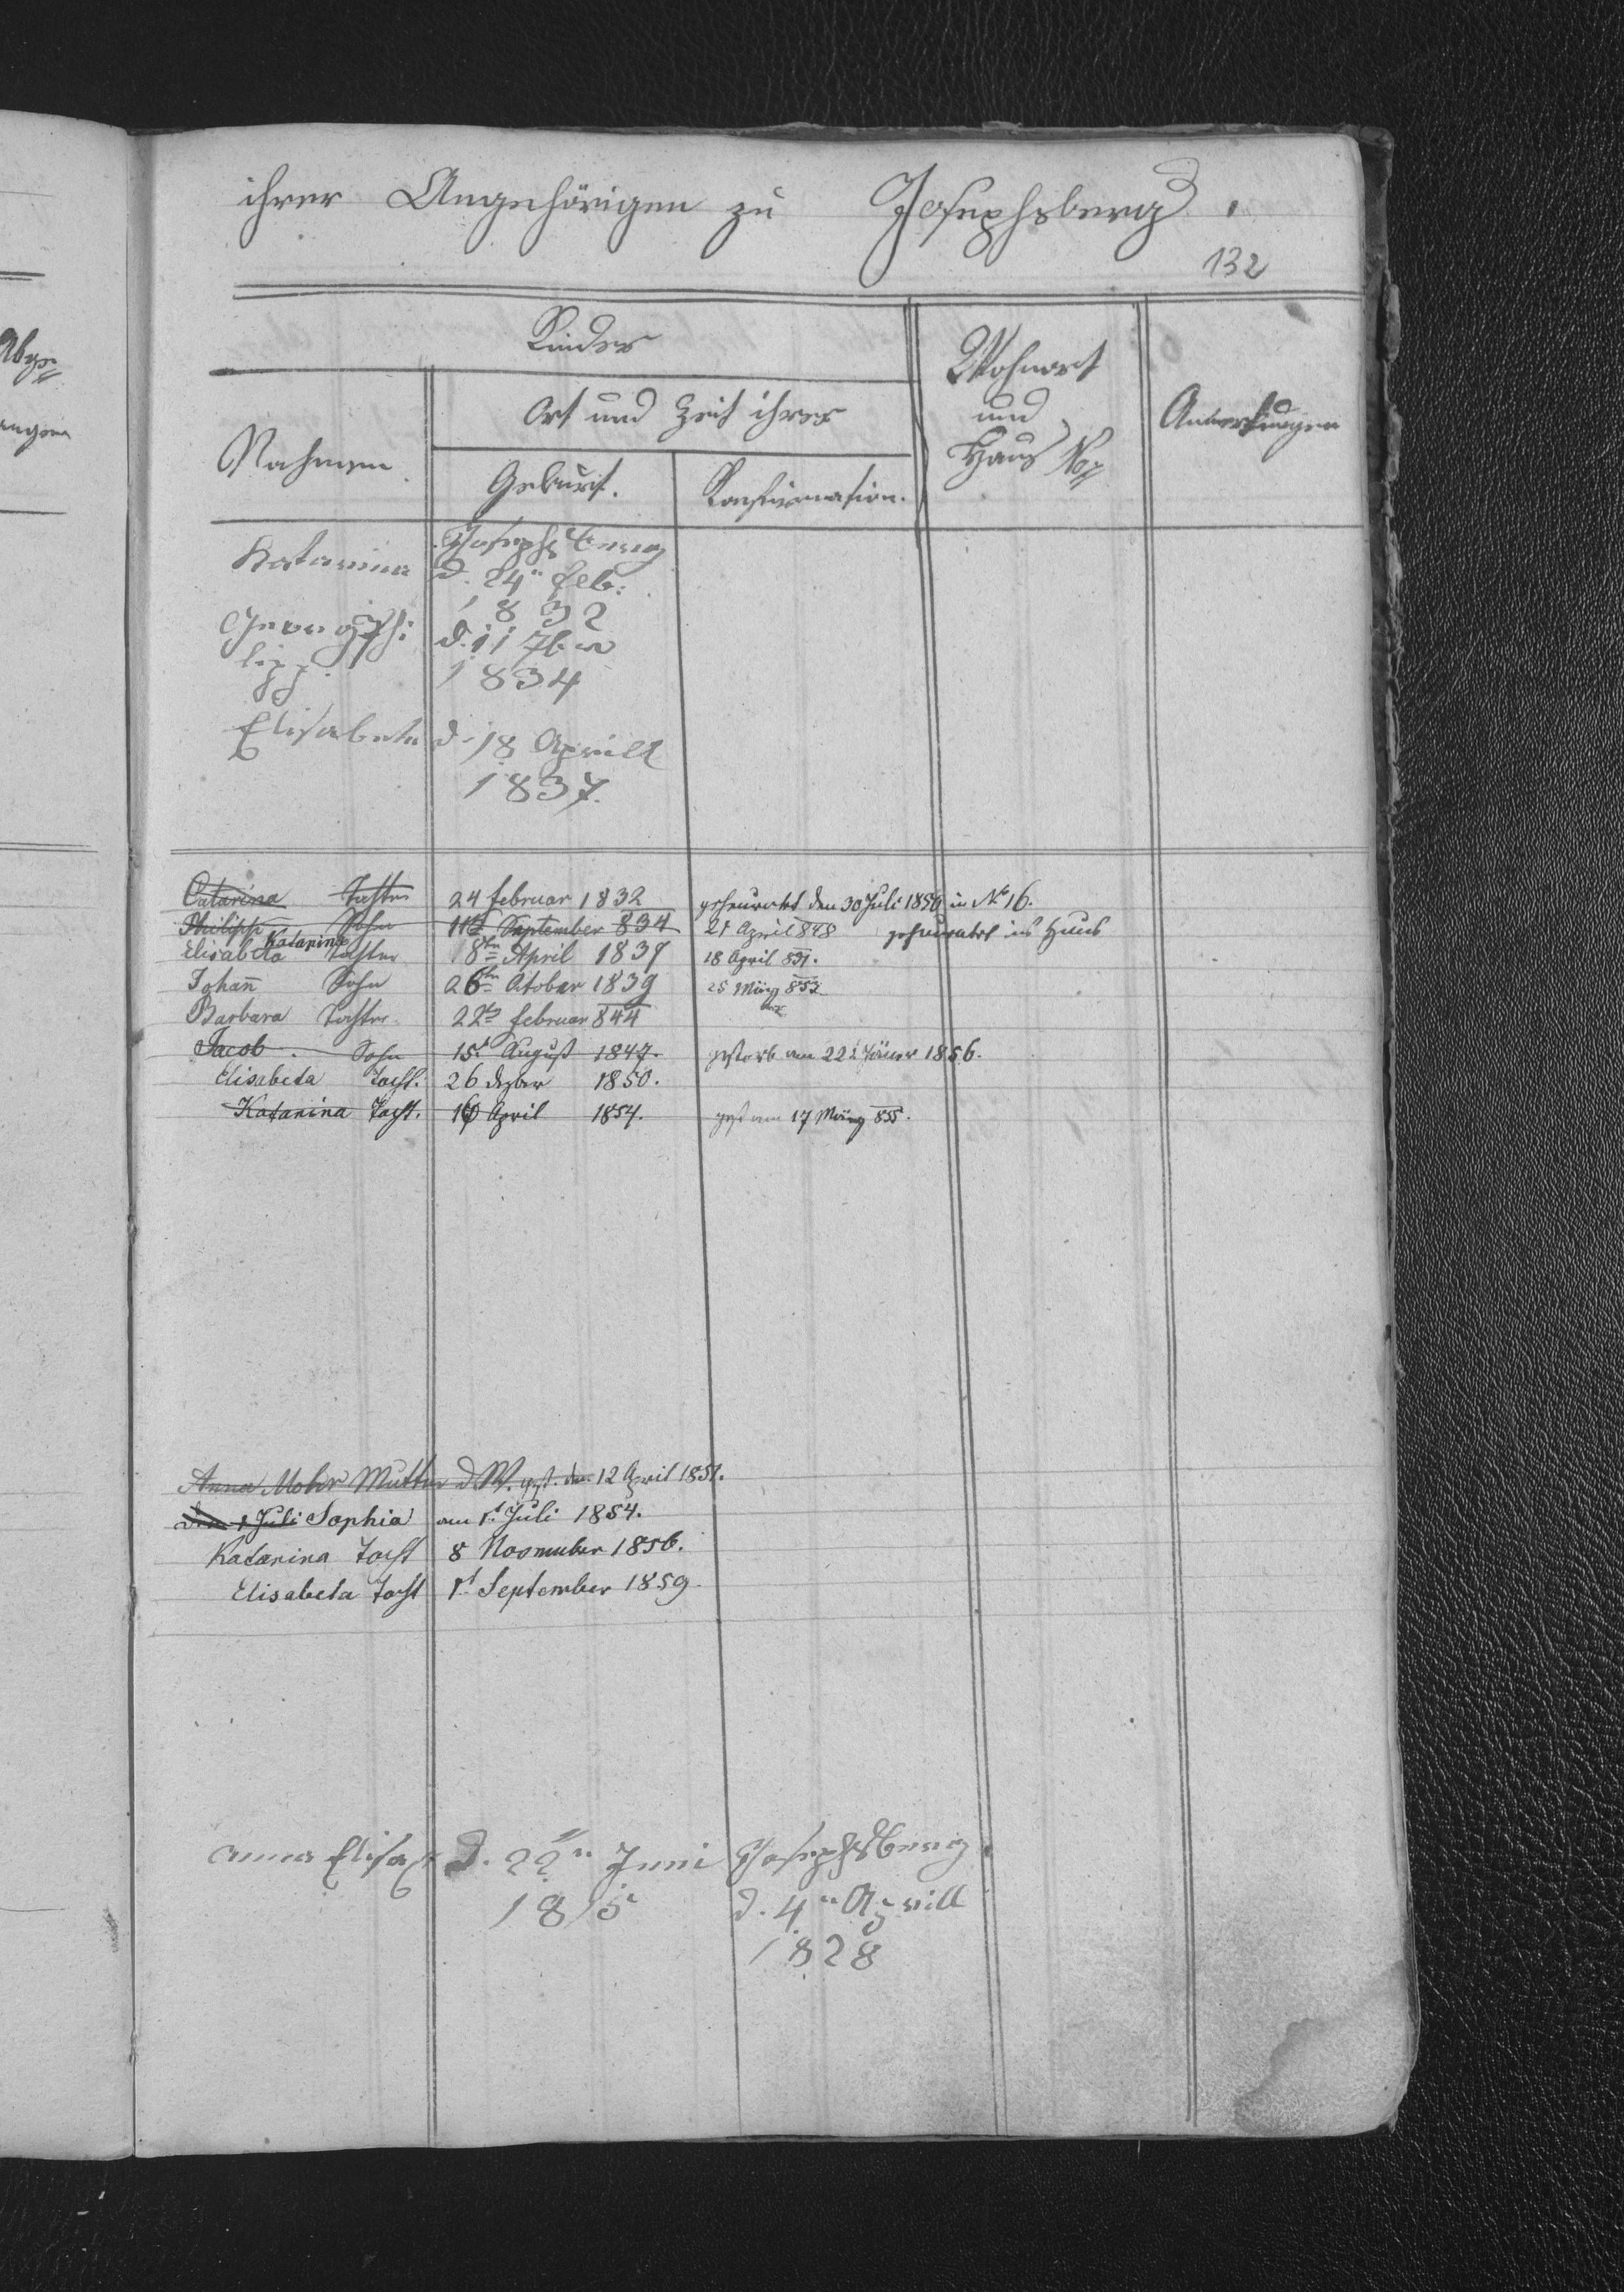 ihrer Angehörigen zu Josephsberg.
132
Kinder
Wohnort
und
Haus No
Anmerkungen
Ort und Zeit ihrer
Nahmen
Geburt.
Konfirmation.
Katarina
Josephsberg
d. 24n Feb:
1832
Georg Phi:
lipp
d. 11 7b
1834
Elisabeta
d. 18 Aprill
1837.
Catarina Tochter 24 Februar 1832 geheurahtet den 30 Juli 1850 in No 16.
Philipp Sohn 11t September 834 21 April 848 geheurahtet ins Haus
Katarina
Elisabeta Tochter 18tn April 1837 18 April 851.
Johan̄ Sohn 26tn Otober 1839 25 März 853
Barbara Tochter 22tn Februar 844
Jacob Sohn 15t August 1847. gestorb am 22t Jäner 1856.
Elisabeta Tocht. 26 Dezber 1850.
Katarina Tocht. 16 April 1854. gest am 17 März 855.
Anna Mohr Mutter d W. gest. den 12 April 1851.
den 1 Juli Sophia am 1t Juli 1854.
Katarina Tocht 8 November 1856.
Elisabeta Tocht 1t September 1859.
Anna Elisa d. 22n Juni Josephsberg
1815 d. 4n Aprill
1828